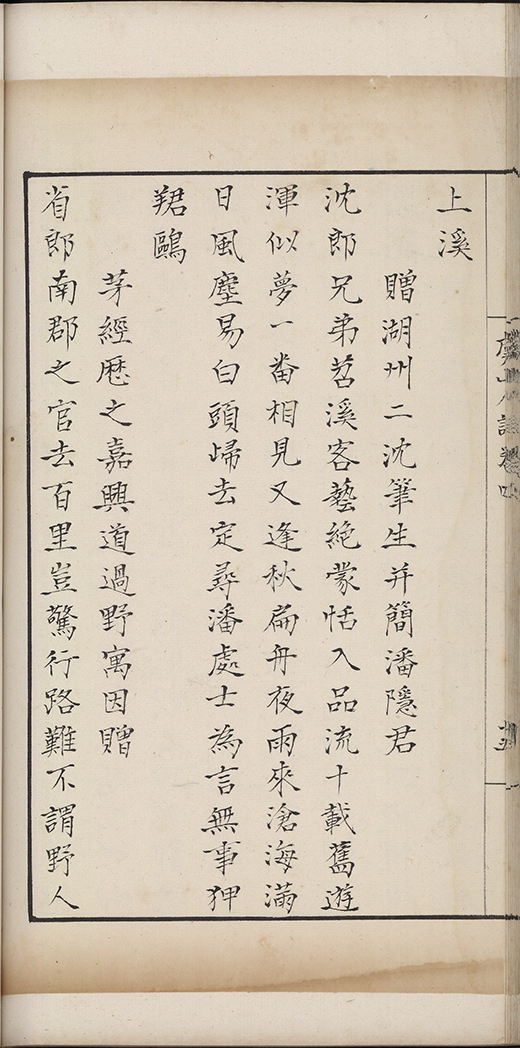 上溪
贈湖州二沈筆生并簡潘隱君
沈郎兄弟苕溪客藝絶蒙恬入品流十載舊遊
渾似夢一番相見又逢秋扁舟夜雨來滄海滿
日風塵易白頭歸去定尋潘處士為言無事狎
羣鷗
茅經歷之嘉興道過野寓因贈
省郎南郡之官去百里豈驚行路難不謂野人